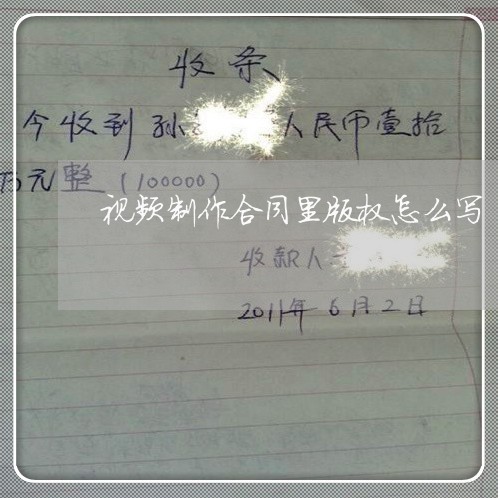 收条
今收到孙 人民币壹拾
万元整（100000）
视频制作合同里版权怎么写
收款人
2011年6月2日